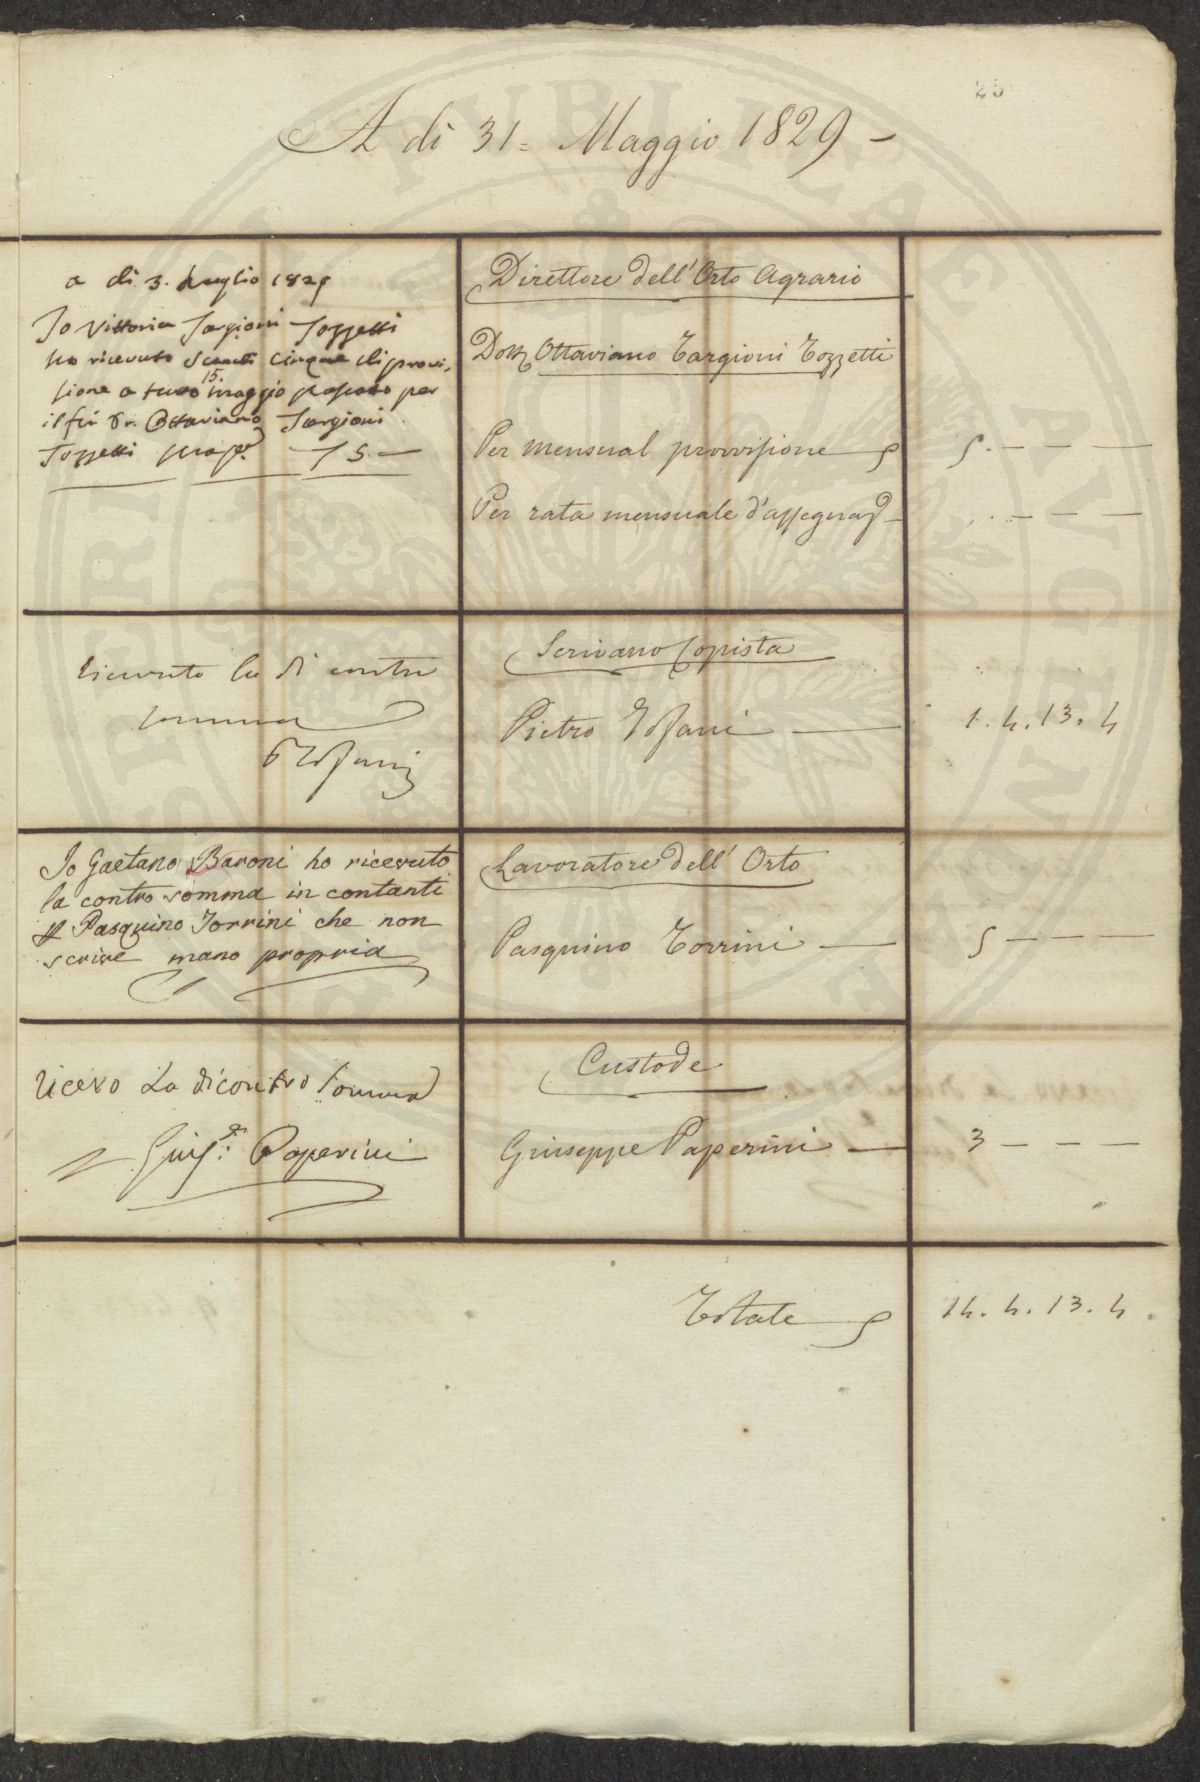 25
A dì 31= Maggio 1829 -
a di 3. Luglio 1829
Io Vittoria Targioni Tozzetti
ho ricevuto Scudi Cinque di provi,
sione a tutto 15. maggio passato per
il fù Dr. Ottaviano Targioni
Tozzetti
5 -
Direttore dell' Orto Agrario
Dott. Ottaviano Targioni Tozzetti
Per mensual provvisione
5. - - -
Per rata mensuale d'assegna
- - -
ricevuto la di contro
somma
Scrivano Copista
Pietro
1. 4. 13. 4
Io Gaetano Baroni ho ricevuto
la contro somma in contanti
Pasquino Torrini che non
scrive mano propria
Lavoratore dell' Orto
Pasquino Torrini -
5 - - -
ricevo La dicontro somma
Gius.e Paperini
Custode
Giuseppe Paperini -
3 - - -
Totale
14. 4. 13. 4